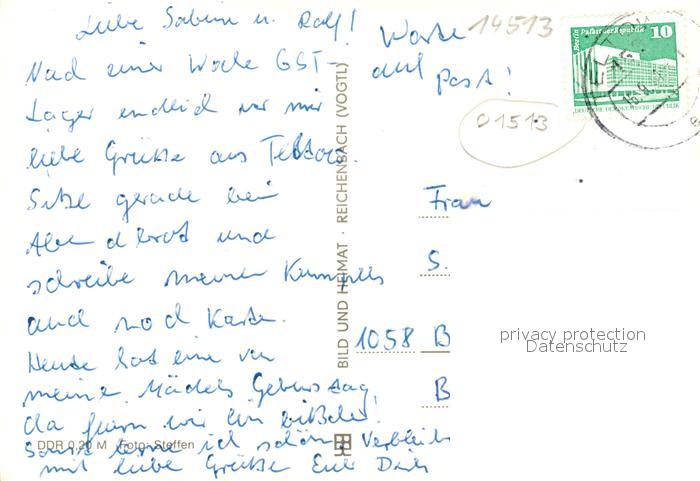 Liebe Sabine u. Ralf!
Nach einer Woche GST-
Lager endlich von mir
liebe Grüße aus Teltow.
Sitze gerade beim
Abendbrot und
schreibe meinen Kumpels
auch noch Karten.
Heute hat eine von
meine Mädels Geburtstag,
da feiern wir ein bißchen.
Sonst lerne ich schön. Verbleibe
mit liebe Grüße Eure
Warte
auf
Post!
14513
01513
Berlin Palast der Republik 10
DEUTSCHE DEMOKRATISCHE REPUBLIK
Frau
S.
1058 B
B
privacy protection
Datenschutz
BILD UND HEIMAT · REICHENBACH (VOGTL)
DDR 0,20 M Foto: Steffen